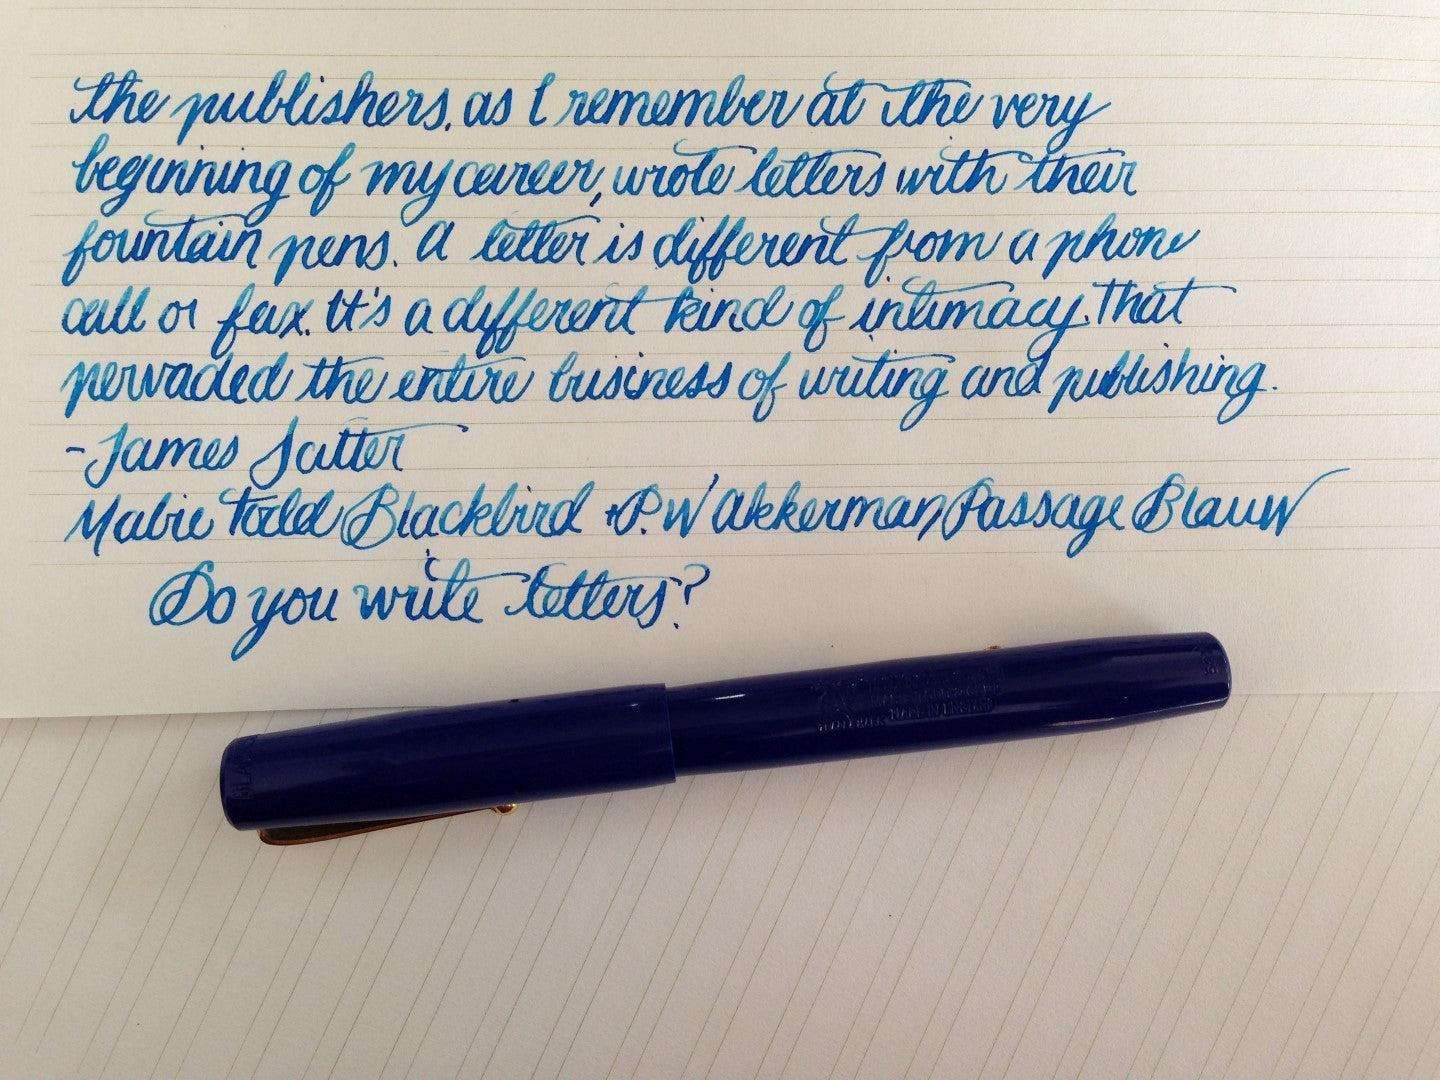 the publishers, as I remember at the very
beginning of my career, wrote letters with their
fountain pens. A letter is different from a phone
call or fax. It's a different kind of intimacy. That
pervaded the entire business of writing and publishing.
- James Salter
Mabie Todd Blackbird + P.W Akkerman Passage Blauw
Do you write letters?
MADE IN ENGLAND